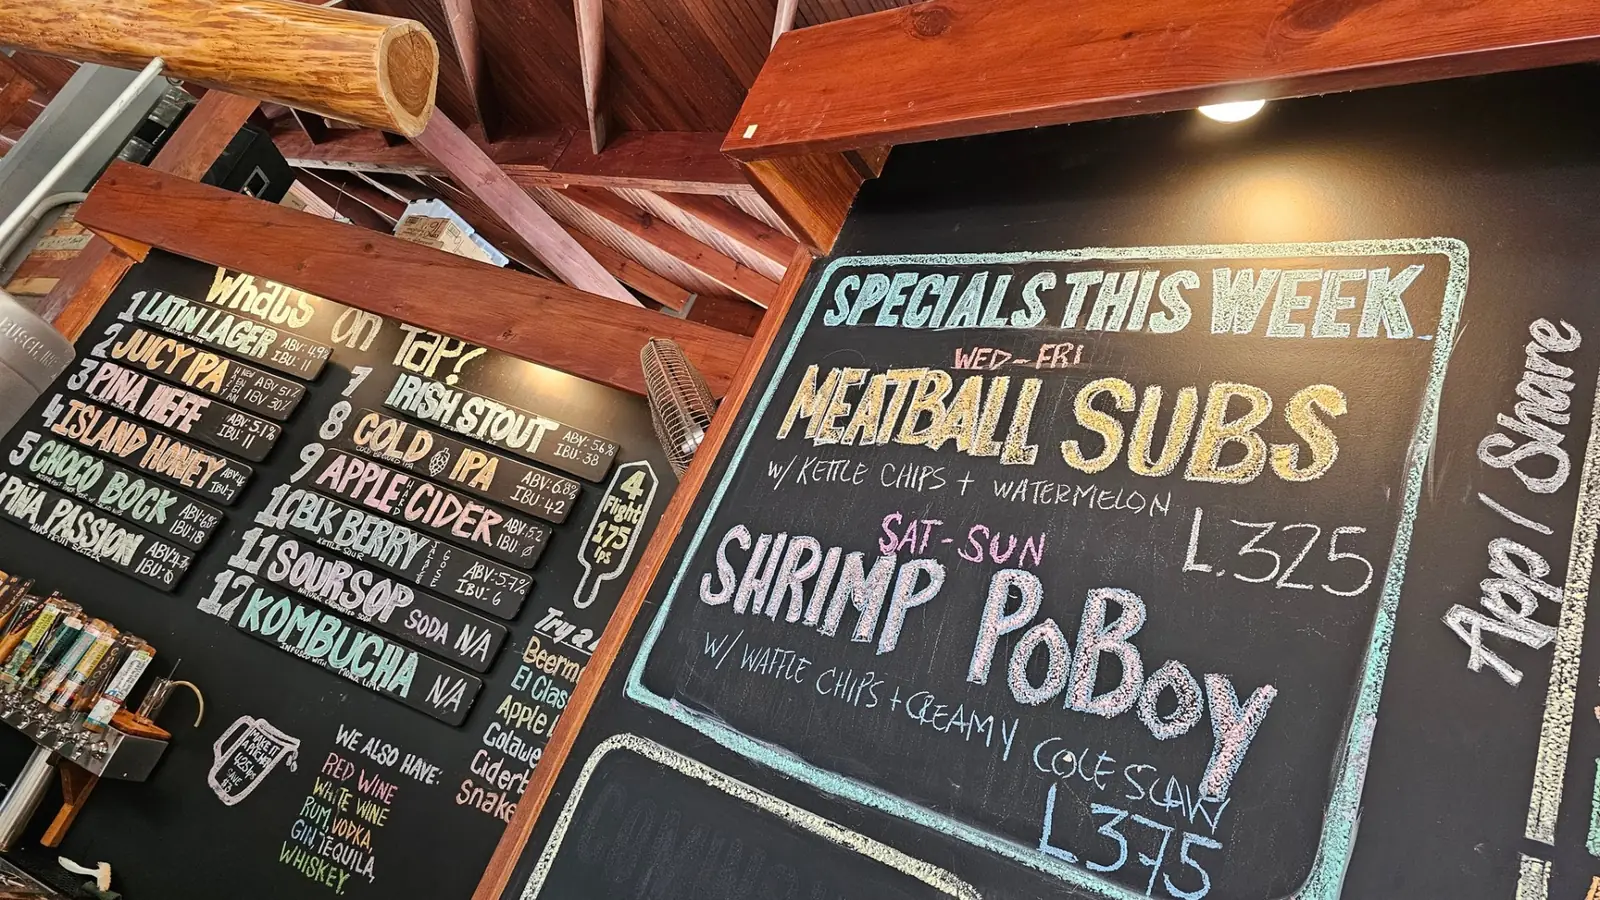 What's on Tap?
1 LATIN LAGER ABV: 4.9%
IBU: 11
2 JUICY IPA ABV 5.1%
IBV 30%
3 PINA HEFE ABV: 5.1%
IBU: 11
4 ISLAND HONEY
5 CHOCO BOCK
IBU: 18
PIÑA PASSION
7 IRISH STOUT ABV: 5.6%
IBU: 38
8 COLD IPA ABV: 6.8%
IBU: 42
9 APPLE CIDER ABV: 5.2
IBU: 0
10 BLK BERRY ABV: 5.7%
KETTLE SOUR IBU: 6
11 SOURSOP SODA N/A
12 KOMBUCHA N/A
INFUSED WITH
4
Flight
175
lps
Try a
Beerm
El Clas
Apple
Colawe
Ciderb
Snake
MAKE IT
A PITCHER
425 lps
SAVE
WE ALSO HAVE:
RED WINE
WHITE WINE
RUM, VODKA,
GIN, TEQUILA,
WHISKEY.
SPECIALS THIS WEEK
WED-FRI
MEATBALL SUBS
W/ KETTLE CHIPS + WATERMELON
L325
SAT-SUN
SHRIMP POBOY
W/ WAFFLE CHIPS + CREAMY COLE SLAW
L375
App / Share